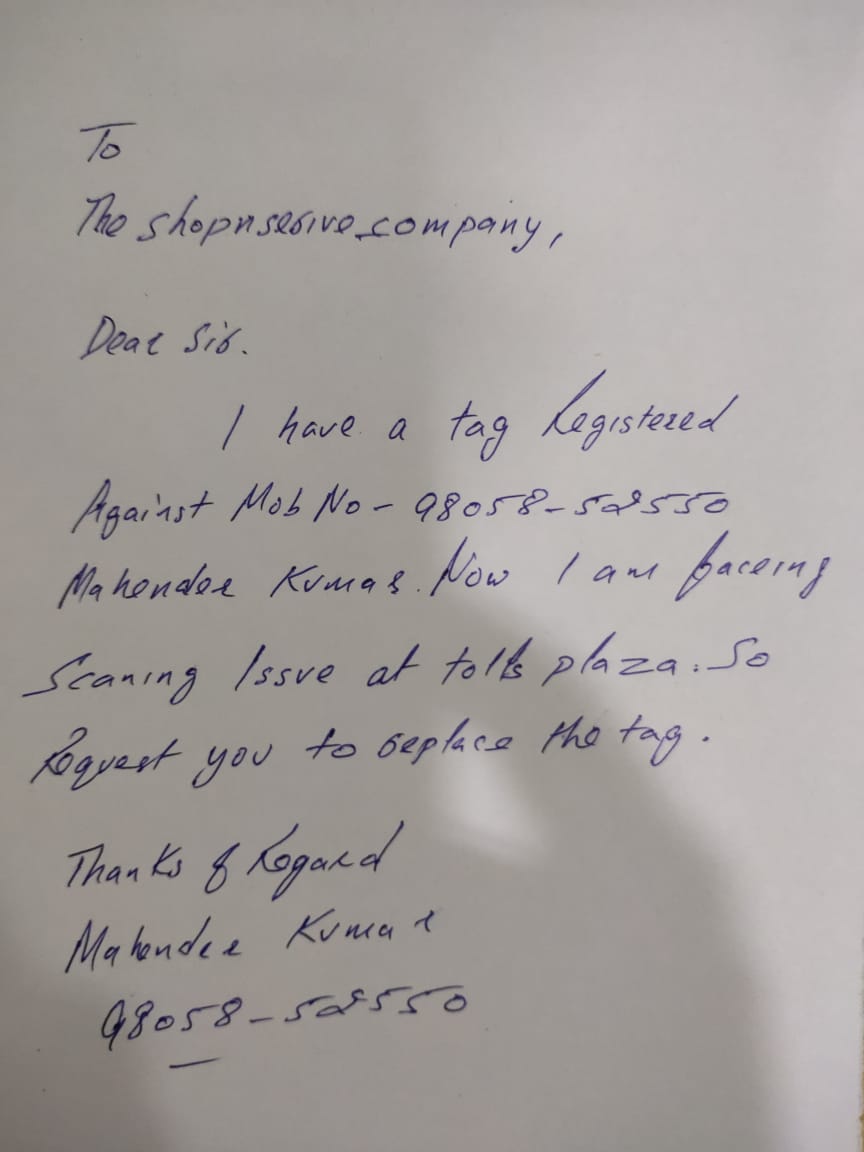 To
The shopnserive company,
Dear Sir.
I have a tag Registered
Against Mob No - 98058-52550
Mahender Kumar. Now I am faceing
Scaning Issue at tolls plaza. So
Request you to replace the tag.
Thanks & Regard
Mahender Kumar
98058-52550